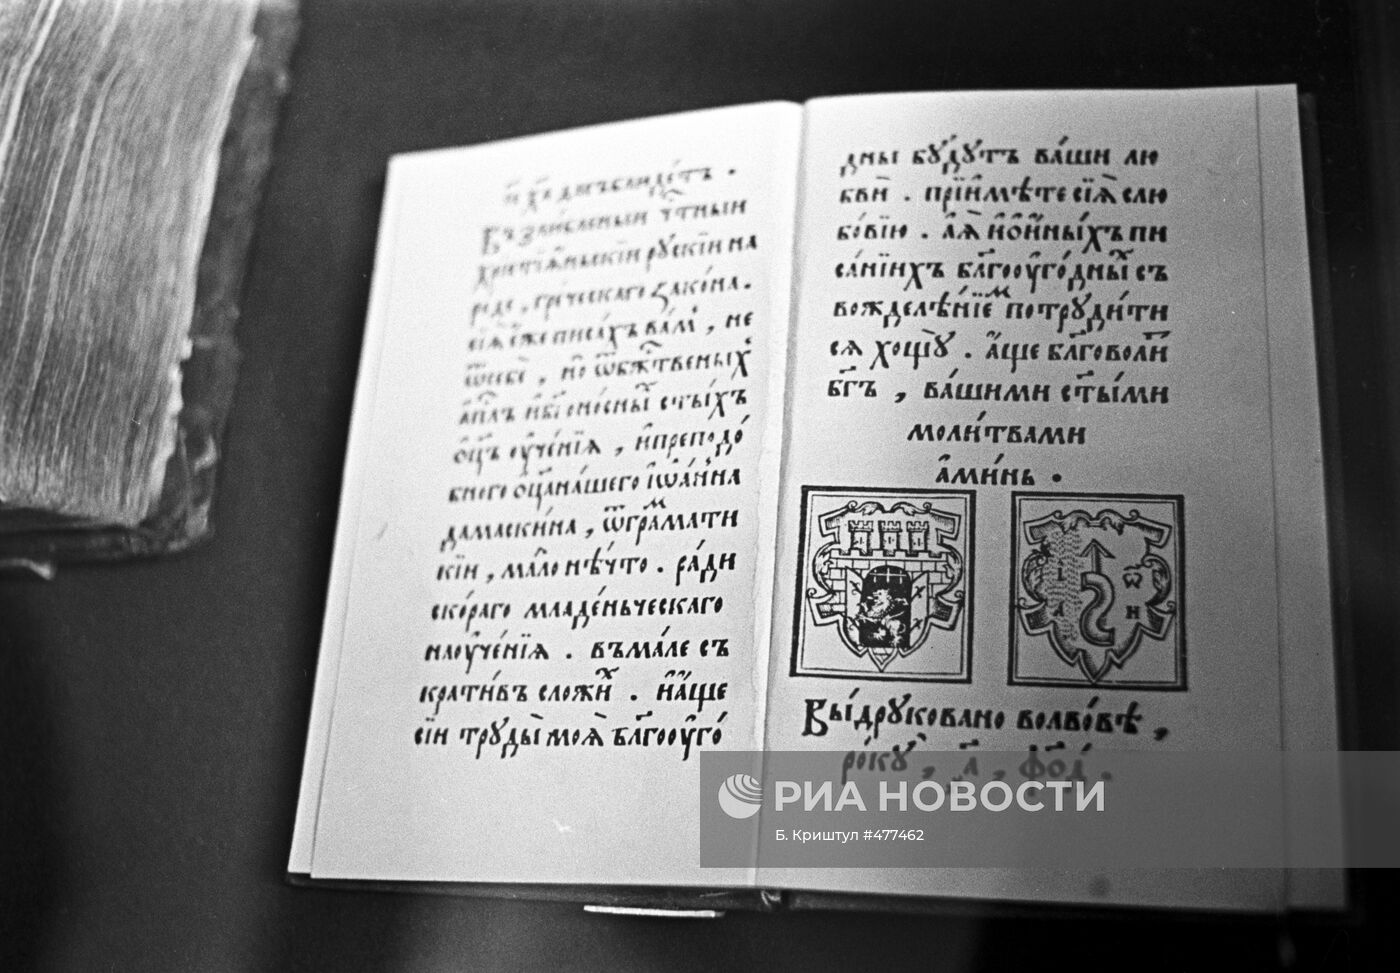 Възлюбленыи чⷭ҇тныи
хрⷭ҇тїѧ́ньскїи рускїи на
роде, гре́ческаго зако́на.
сїѧ҄ е҆́же писа́хъ ва́мъ, не
ѿ себѐ, но̀ ѿ бж҃е́ственыхъ
а҆пⷭ҇лъ и҆ бг҃оно́сныⷯ ст҃ы́хъ
ѻ҆ц҃ъ ᲂу҆че́нїѧ, и҆ препⷣо́
бнаго ѻ҆ц҃а на́шего і҆ѡа́нна
дамаски́на, ѿ грама́ти
кїи, ма́ло нѣ́что. ра́ди
ско́раго младе́ньческаго
наᲂуче́нїѧ. въма́ле съ
крати́въ сложиⷯ. и҆ а҆́ще
сїи труды̀ моѧ҄ бл҃гоᲂуго́
дны бу́дутъ ва́ши лю
бвѝ. прїи҆мѣ́те сїѧ҄ слю
бо́вїю. а҆́зъ и҆ ѻ҆ и҆ны́хъ пи
са́нїихъ бл҃гоᲂуго́дныⷯ съ
вожделѣ́нїеⷨ потруди́ти
сѧ хощу̀. а҆́ще бл҃говоли́тъ
бг҃ъ, ва́шими ст҃ы́ми
моли́твами
а҆ми́нь.
І Ѡ
А Н
Вы́друковано волво́вѣ,
ро́ку, ҂а҃, ф҃о́д.
РИА НОВОСТИ
Б. Криштул #477462